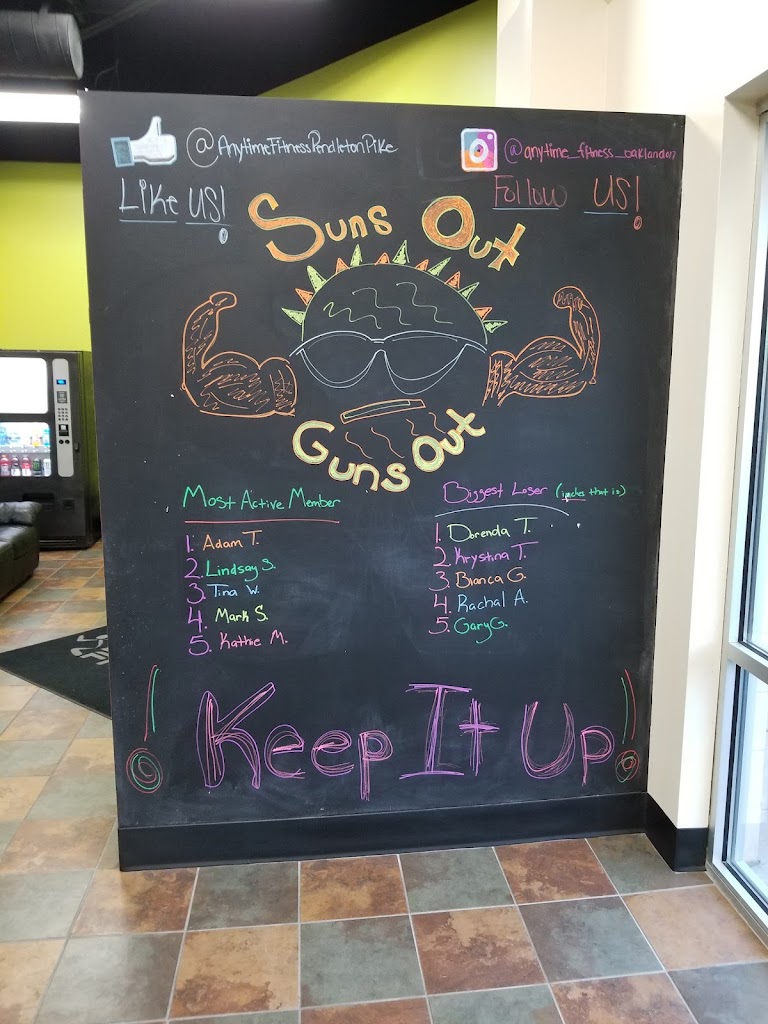 @AnytimeFitnessPendletonPike
@anytime_fitness_oaklandon
Like US!
Follow US!
Suns Out
Guns Out
Most Active Member
1. Adam T.
2. Lindsay S.
3. Tina W.
4. Mark S.
5. Kathie M.
Biggest Loser (inches that is)
1. Dorenda T.
2. Krystina T.
3. Bianca G.
4. Rachal A.
5. Gary G.
! Keep It Up!